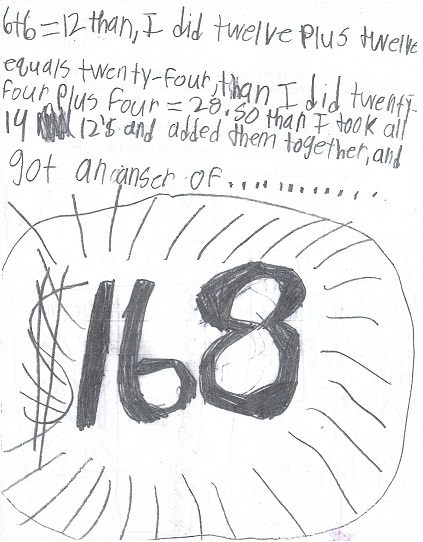 6+6=12 than, I did twelve plus twelve
equals twenty-four, than I did twenty-
four plus four = 28. so than I took all
14 12's and added them together, and
got an anser of............
$168